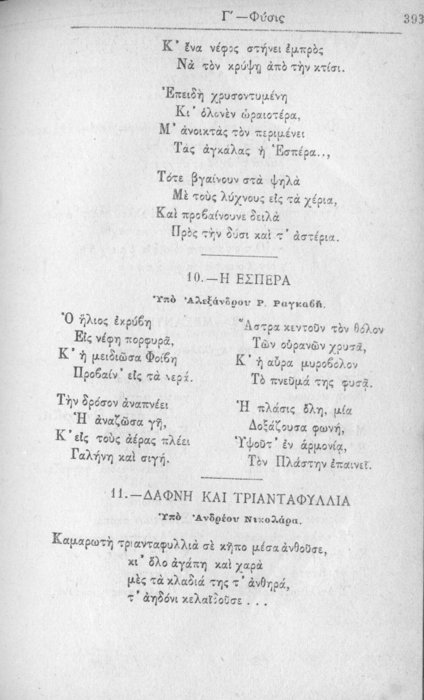 Γ΄ — Φύσις
393
Κ' ἕνα νέφος στήνει ἐμπρὸς
Νὰ τὸν κρύψῃ ἀπὸ τὴν κτίσι.
Ἐπειδὴ χρυσοντυμένη
Κι' ὁλονὲν ὡραιοτέρα,
Μ' ἀνοικτὰς τὸν περιμένει
Τὰς ἀγκάλας ἡ Ἑσπέρα..,
Τότε βγαίνουν στὰ ψηλὰ
Μὲ τοὺς λύχνους εἰς τὰ χέρια,
Καὶ προβαίνουνε δειλὰ
Πρὸς τὴν δύσι καὶ τ' ἀστέρια.
10.—Η ΕΣΠΕΡΑ
Ὑπὸ Ἀλεξάνδρου Ρ. Ραγκαβῆ.
Ὁ ἥλιος ἐκρύβη
Εἰς νέφη πορφυρᾶ,
Κ' ἡ μειδιῶσα Φοίβη
Προβαίν' εἰς τὰ νερά.
Τὴν δρόσον ἀναπνέει
Ἡ ἀναζῶσα γῆ,
Κ' εἰς τοὺς ἀέρας πλέει
Γαλήνη καὶ σιγή.
Ἄστρα κεντοῦν τὸν θόλον
Τῶν οὐρανῶν χρυσᾶ,
Κ' ἡ αὔρα μυροβόλον
Τὸ πνεῦμά της φυσᾷ.
Ἡ πλάσις ὅλη, μία
Δοξάζουσα φωνή,
Ὑψοῦτ' ἐν ἁρμονίᾳ,
Τὸν Πλάστην ἐπαινεῖ.
11.—ΔΑΦΝΗ ΚΑΙ ΤΡΙΑΝΤΑΦΥΛΛΙΑ
Ὑπὸ Ἀνδρέου Νικολάρα.
Καμαρωτὴ τριανταφυλλιὰ σὲ κῆπο μέσα ἀνθοῦσε,
κι' ὅλο ἀγάπη καὶ χαρὰ
μὲς τὰ κλαδιά της τ' ἀνθηρά,
τ' ἀηδόνι κελαϊδοῦσε . . .